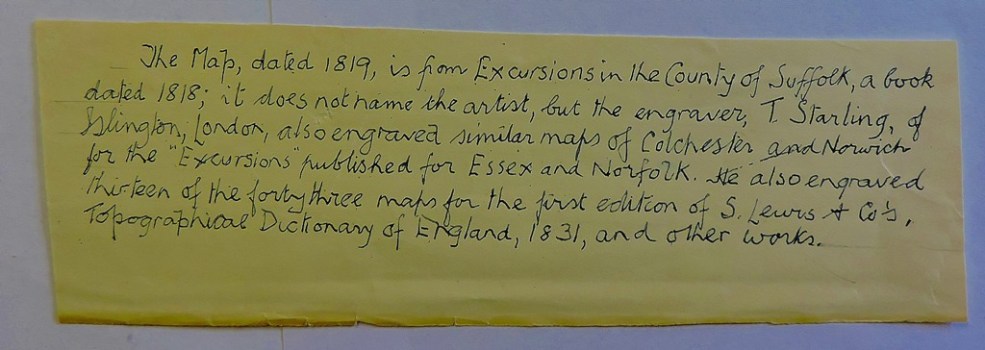 The Map, dated 1819, is from Excursions in the County of Suffolk, a book
dated 1818; it does not name the artist, but the engraver, T. Starling, of
Islington, London, also engraved similar maps of Colchester and Norwich
for the "Excursions" published for Essex and Norfolk. He also engraved
thirteen of the forty three maps for the first edition of S. Lewis & Co's,
Topographical Dictionary of England, 1831, and other works.